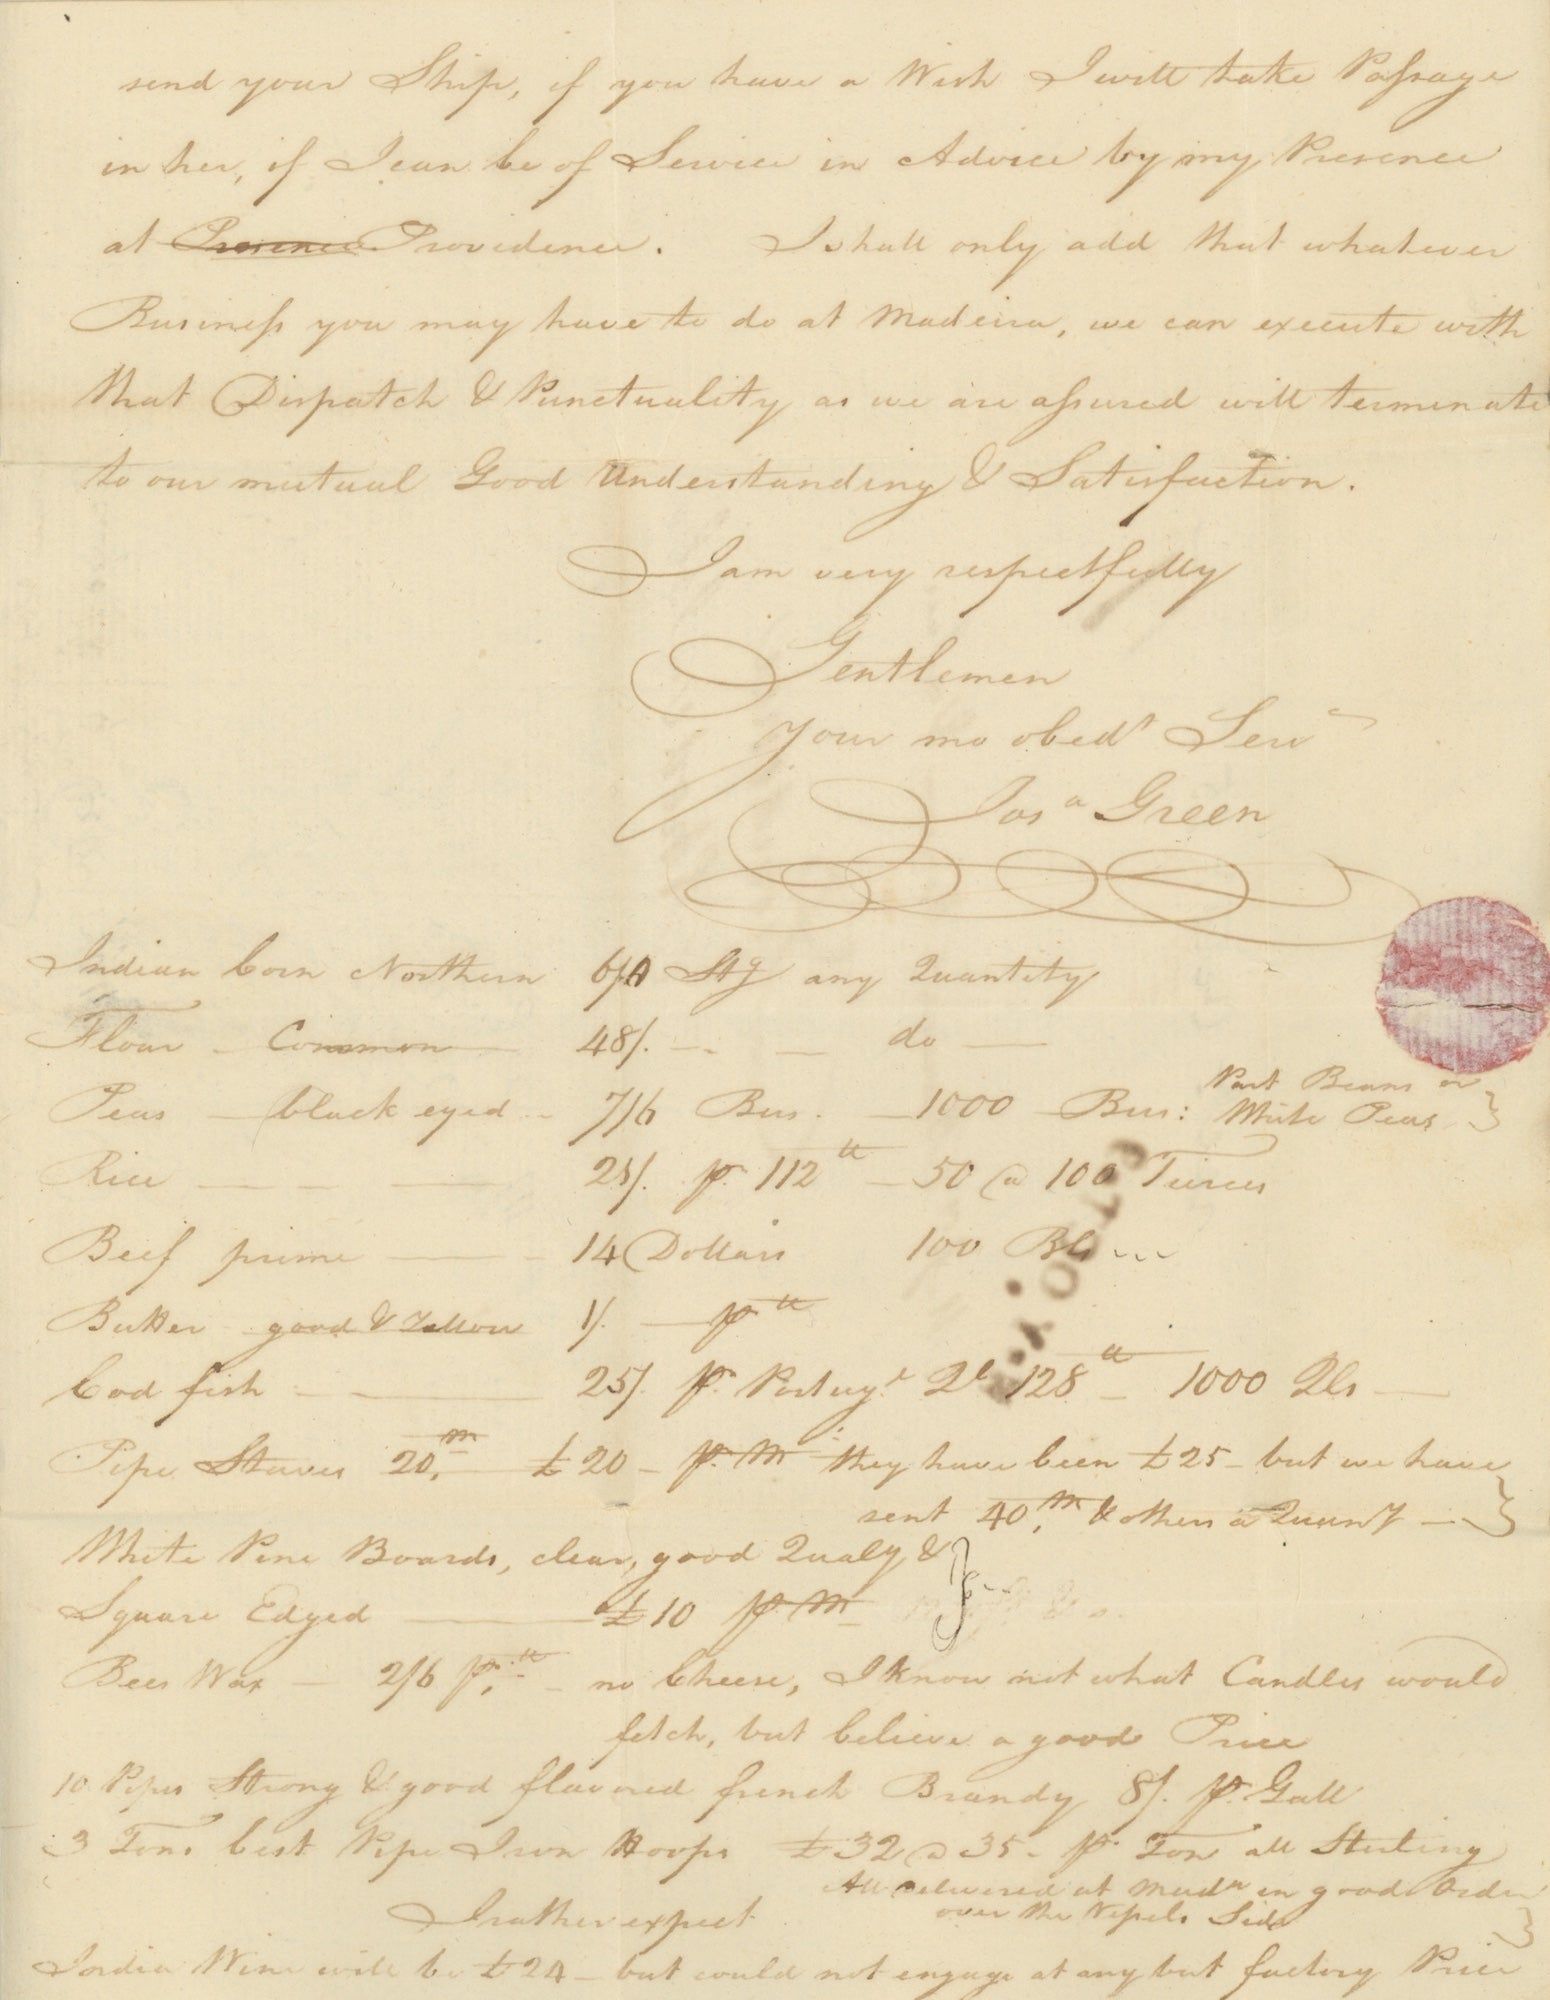 send your Ship, if you have a Wish I will take Passage
in her, if I can be of Service in Advice by my Presence
at Presence Providence. I shall only add that whatever
Business you may have to do at Madeira, we can execute with
that Dispatch & Punctuality as we are assured will terminate
to our mutual Good Understanding & Satisfaction.
I am very respectfully
Gentlemen
Your mo obedt Serv
Josa Green
Indian Corn Northern 6/ Stg any Quantity
Flour - Common 48/. - - do -
Peas - black eyed - 7/6 Bus. - 1000 - Bus: Part Beans or
White Peas
Rice - - - 25/. p. 112 lb - 50 @ 100 Tierces
Beef prime - 14 Dollars 100 Bls
Butter good & Yellow 1/. - p lb
Cod fish - 25/. p. Portugl Ql 128 lb - 1000 Qls -
Pipe Staves 20.m £20 - p. M they have been £25 - but we have
sent 40.m & others a Quanty -
White Pine Boards, clear, good Qualy &
Square Edged - £10 p. M
Bees Wax - 2/6 p. lb - no Cheese, I know not what Candles would
fetch, but believe a good Price
10 Pipes Strong & good flavored french Brandy 8/. p. Gall
3 Tons best Pipe Iron Hoops £32 @ 35 - p. Ton all Sterling
All delivered at Mada in good Order
over the Vessels Side
I rather expect
India Wine will be £24 - but could not engage at any but factory Price